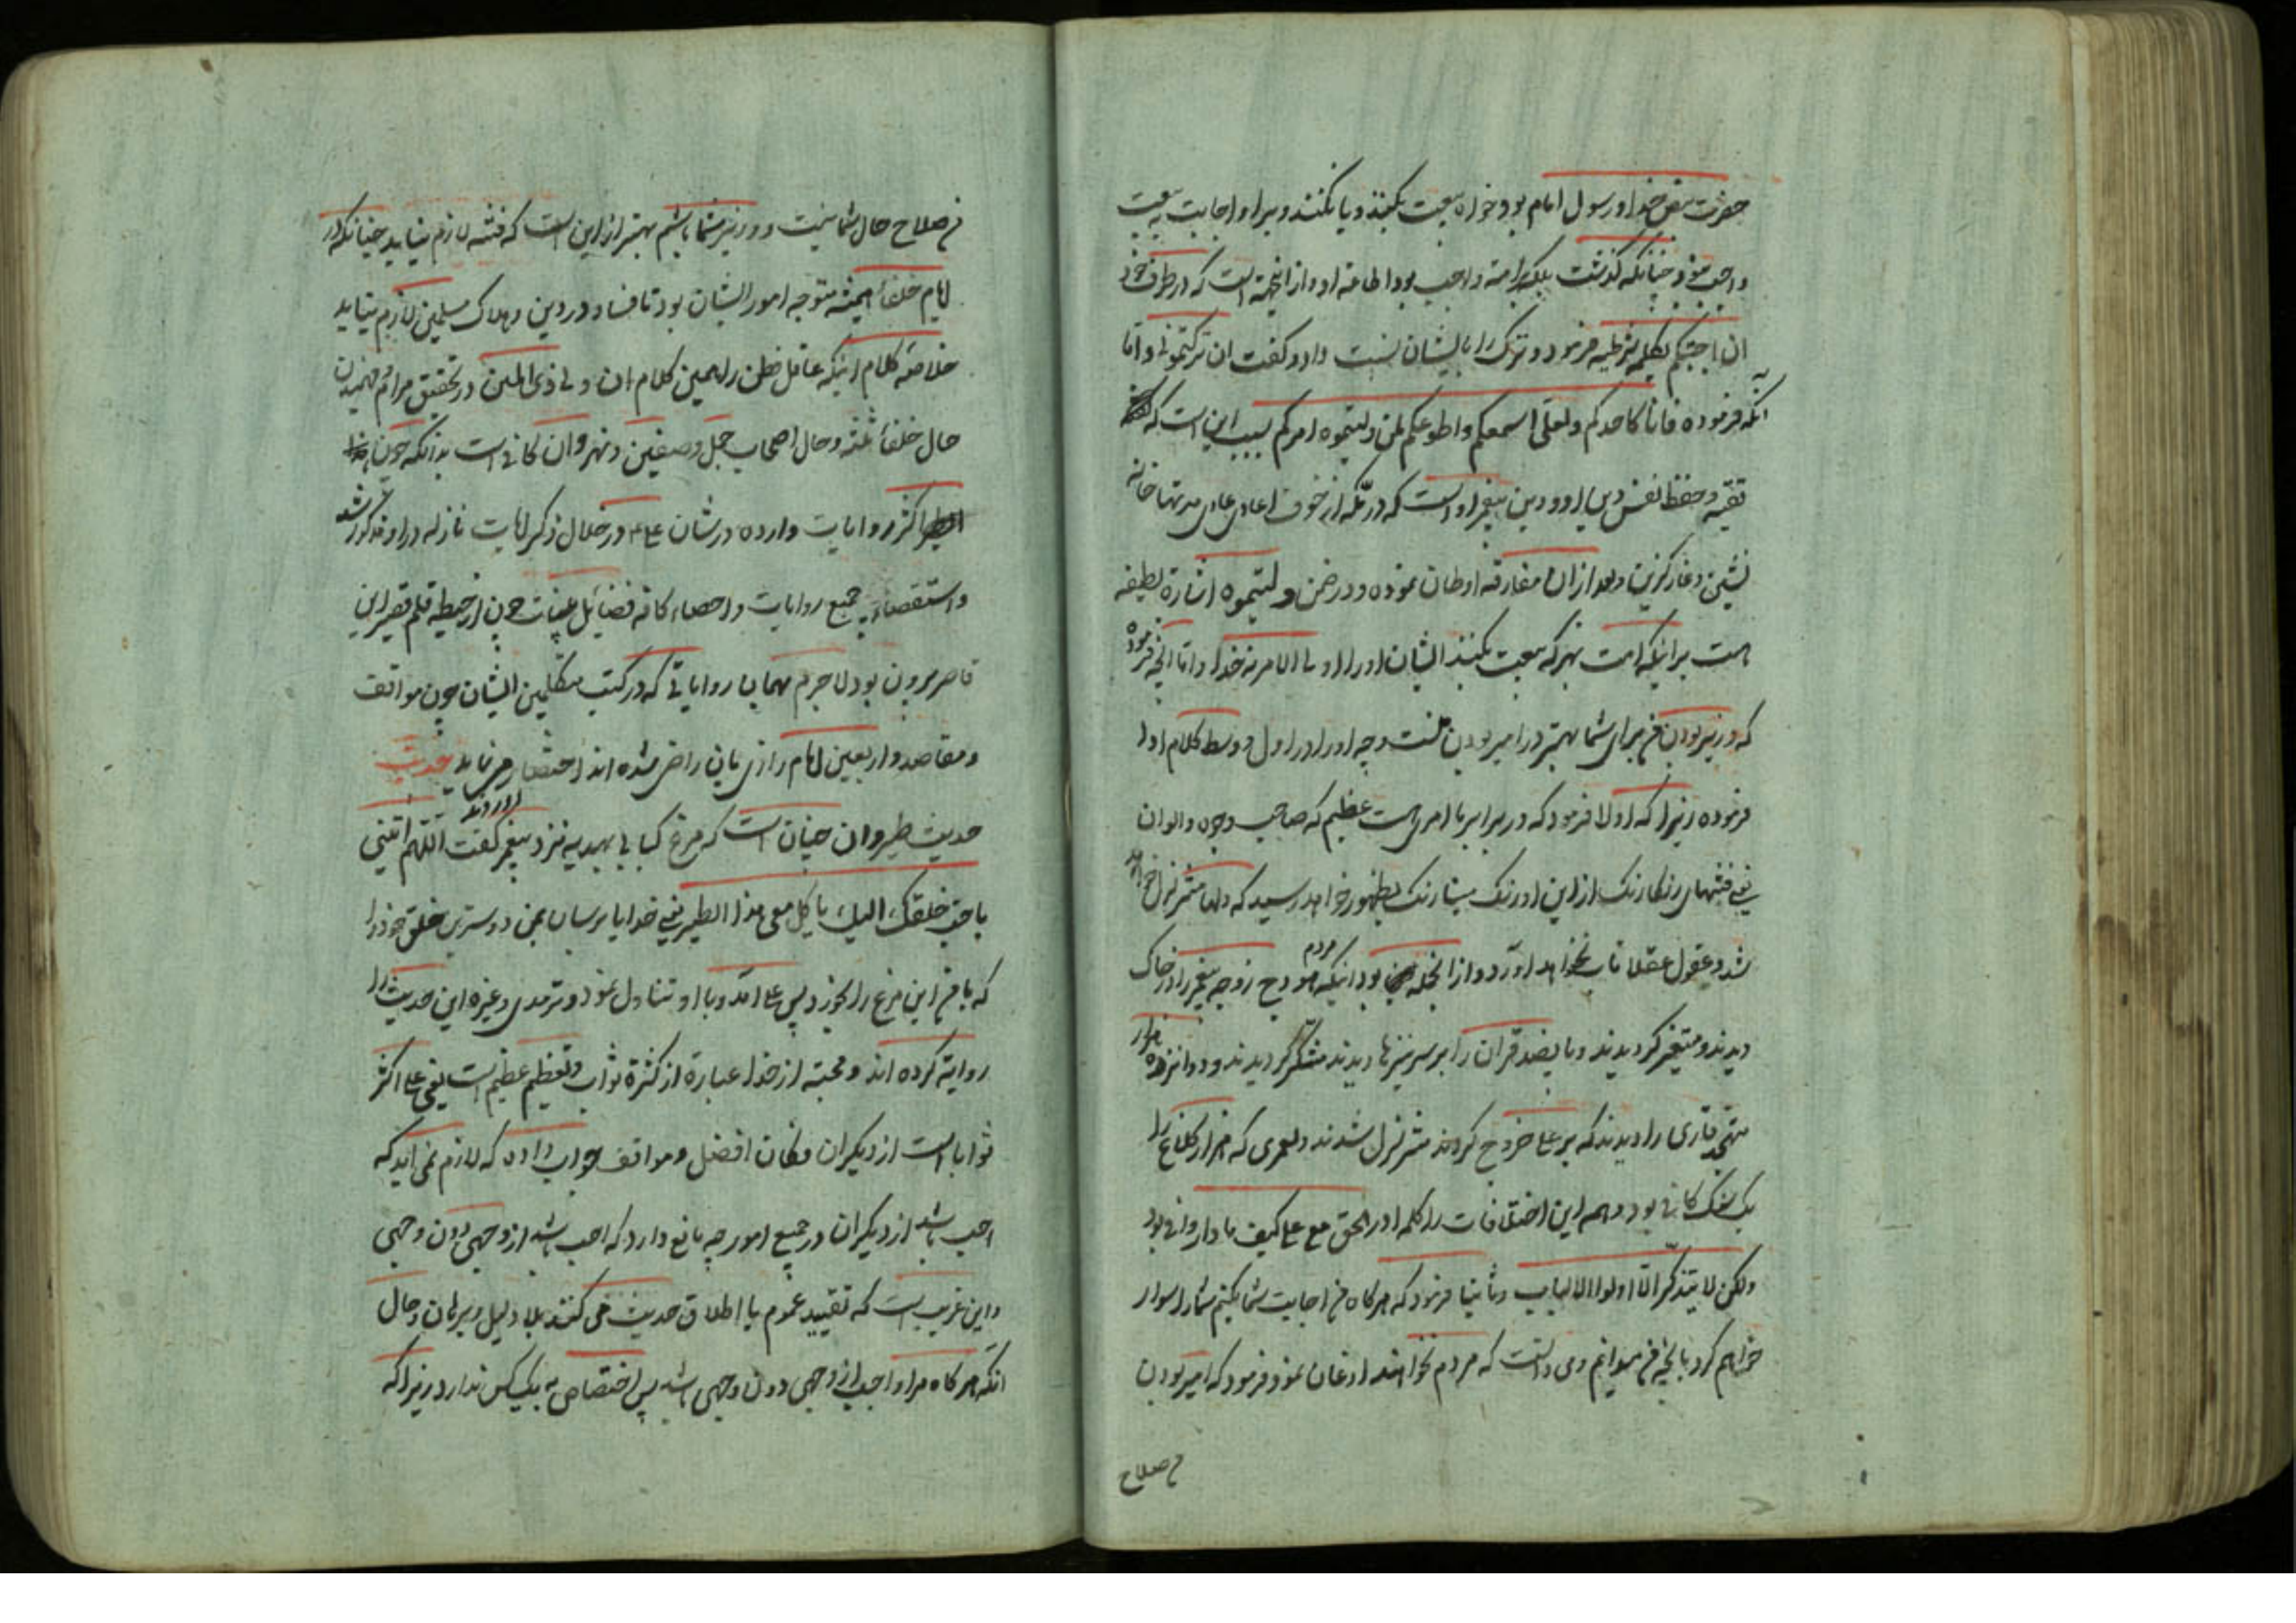 حضرت بنص خدا و رسول امام بود خواه بیعت بکنند و یا نکنند و برو اجابت بیعت
واجب نبود چنانکه گذشت بلکه بر امة واجب بود اطاعة او و از اینجهة است که در طرف خود
ان اجبتکم بکلمه شرطیه فرمود و ترک را بایشان نسبت داد و گفت ان ترکتمونی و اما
آنکه فرموده فانا کاحدکم ولعلی اسمعکم واطوعکم لمن ولیتموه امرکم سبب این است که
تقیه و حفظ نفس و دین پیغمبر او است که در مکه از خوف اعادی عادی مدتها خانه
نشین و غار گزین و بعد از ان مفارقه اوطان نموده و در ضمن ولیتموه اشارة لطیفه
است بر اینکه امت بهر که بیعت بکنند ایشان اورا اولی الامر نه خدا و اما انچه فرموده
که وزیر بودن من برای شما بهتر در امیر بودن منست وجه اورا در اول و وسط کلام اولا
فرموده زیرا که اولا فرمود که در برابر ما امری است عظیم که صاحب وجوه و الوان
یعنی فتنهای رنکارنک از این اورنک مینارنک بظهور خواهد رسید که دلها متزلزل خواهد
شد و عقول عقلا تاب نخواهد اورد و از انجمله بود اینکه مردم هودج زوجه پیغمبر را در خاک
دیدند و متغیر گردیدند و پانصد قران را بر سر نیزها دیدند متشکک گردیدند و دوانزده هزار
متهجد قاری را دیدند که بر علی خروج کردند متزلزل شدند ولعمری که هزار کلاغ را
یک سنک کافی بود و همه این اختلافات را کلمه الحق مع علی کیف ما دار وافی بود
ولکن لا یتذکر الا اولوا الالباب و ثانیا فرمود که هرکاه من اجابت شما بکنم شمارا سوار
خواهم کرد بانچه من میدانم و می دانست که مردم نخواهند اذعان نمود و فرمود که امیر بودن
من صلاح
من صلاح حال شما نیست و وزیر شما باشم بهتر از این است که فتنه لازم بیاید چنانکه در
ایام خلفا همیشه متوجه امور ایشان بود تا فساد در دین و هلاک مسلمین لازم نیاید
خلاصه کلام اینکه عاقل فطن را همین کلام ان ولی ذی المنن در تحقیق مرام و فهمیدن
حال خلفا ثلثه و حال اصحاب جمل و صفین و نهروان کافی است بدانکه چون
اکثر روایات وارده در شان علی ۴ در خلال ذکر ایات نازله در او مذکور شد
و استقصاء جمیع روایات و احصاء کافه فضایل چون از حیطه قلم قصیر این
قاصر بیرون بود لا جرم بهمان روایاتی که در کتب متکلمین ایشان چون مواقف
و مقاصد و اربعین امام رازی بان راضی شده اند اختصار می نماید حدیث
حدیث طیر و ان چنان است که مرغ کبابی بهدیه نزد پیغمبر اوردند گفت اللهم ائتنی
باحب خلقک الیک یاکل معی هذا الطیر یعنی خدایا برسان بمن دوسترین خلق خود را
که با من این مرغ را بخورد پس علی امد و با او تناول نمود و ترمدی و غیره این حدیث را
روایة کرده اند و محبة از خدا عبارة از کثرة ثواب و تعظیم عظیم است یعنی علی اکثر
ثوابا است از دیکران فکان افضل و مواقف جواب داده که لازم نمی اید که
احب باشد از دیکران در جمیع امور چه مانع دارد که احب باشد از وجهی دون وجهی
و این غریب است که تقیید عموم یا اطلاق حدیث می کنند بلا دلیل و برهان و حال
انکه هرکاه مراد احب از وجهی دون وجهی باشد پس اختصاص به یک کس ندارد زیرا که